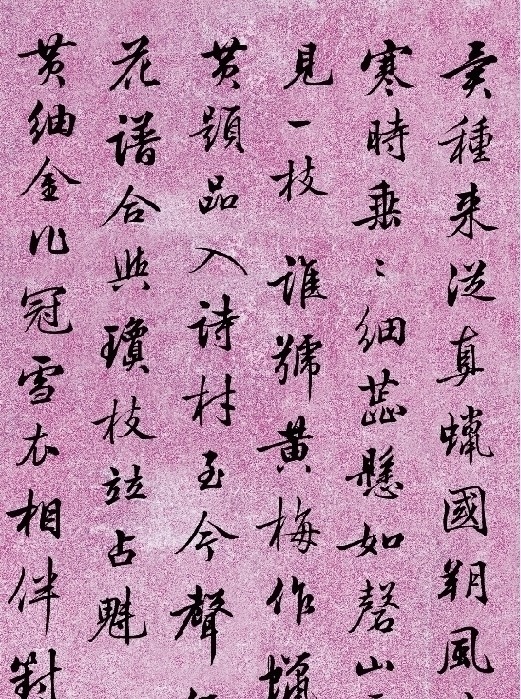 異種来從真蠟國朔風
寒時垂〻細蕊懸如磬山
見一枝 誰號黄梅作蠟
黄題品入詩材至今聲
花譜合與瓊枝竝占魁
黄紬金作冠雪衣相伴對